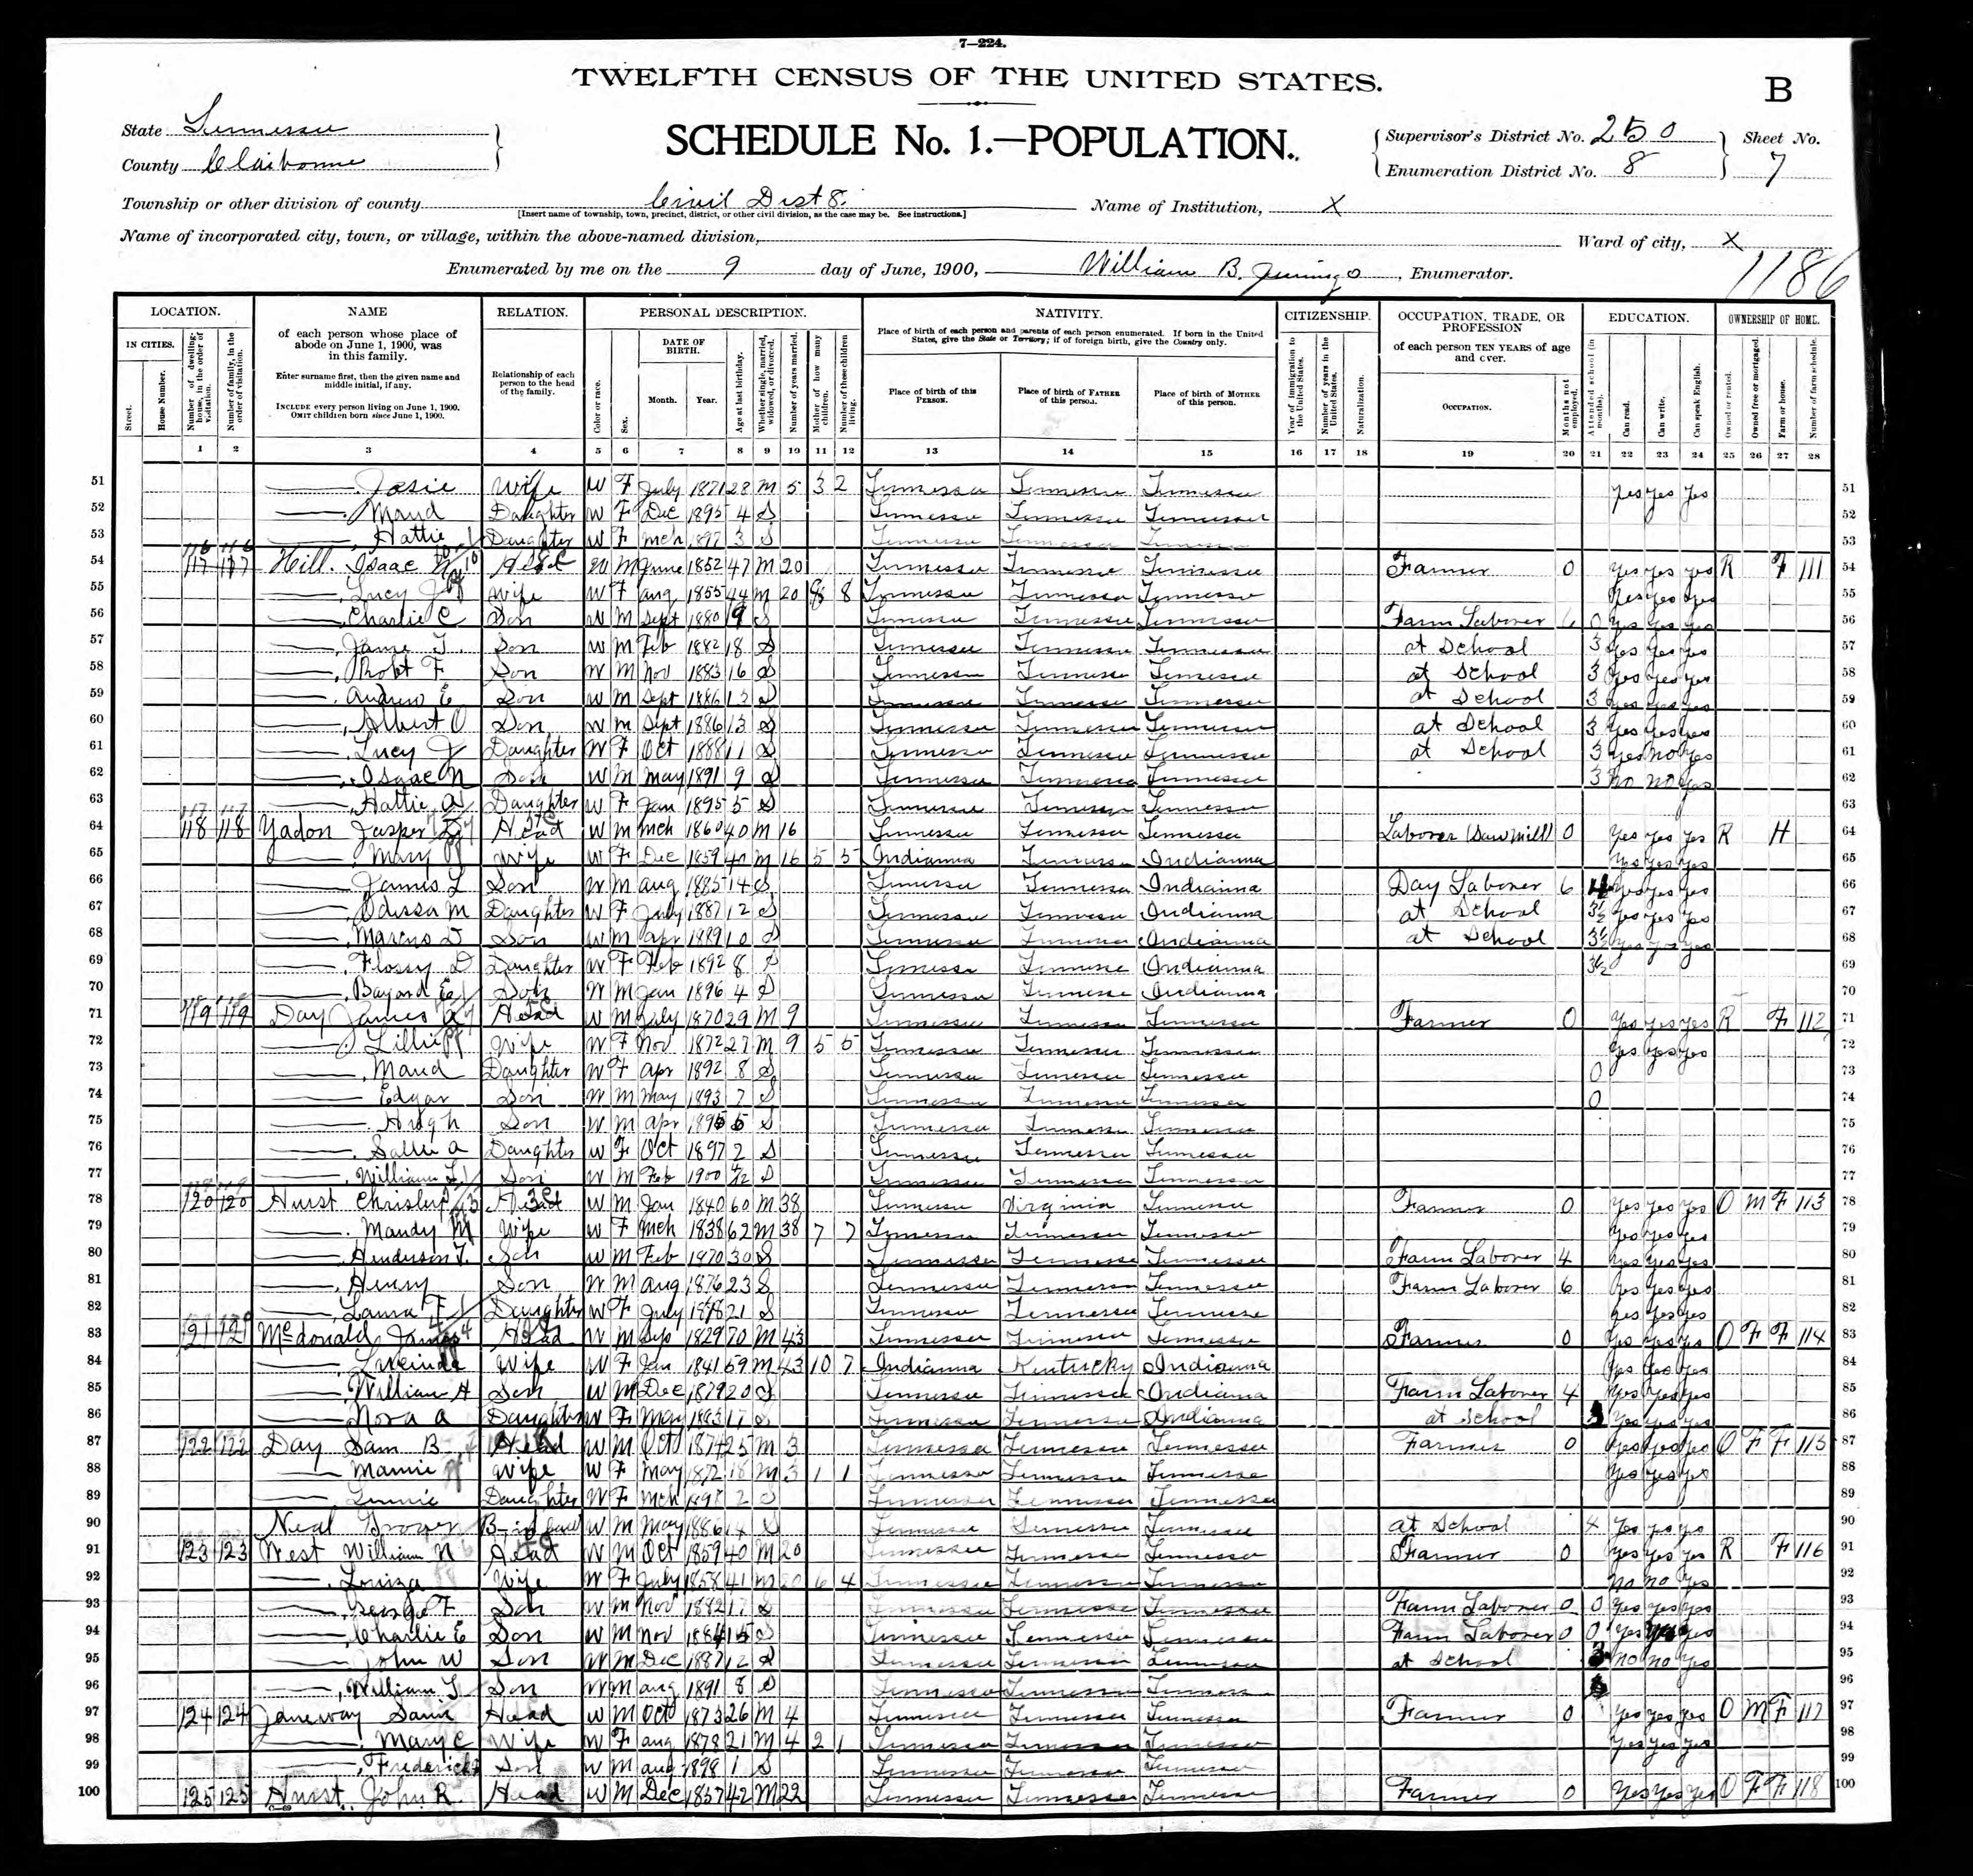 7—224.
TWELFTH CENSUS OF THE UNITED STATES.
B
State Tennessee
SCHEDULE No. 1.—POPULATION.
Supervisor's District No. 250
Sheet No.
County Claiborne
Enumeration District No. 8
7
Township or other division of county Civil Dist 8.
[Insert name of township, town, precinct, district, or other civil division, as the case may be. See instructions.]
Name of Institution, X
Name of incorporated city, town, or village, within the above-named division,
Ward of city, X
Enumerated by me on the 9 day of June, 1900, William B. , Enumerator.
1186
LOCATION. NAME RELATION. PERSONAL DESCRIPTION. NATIVITY. CITIZENSHIP. OCCUPATION, TRADE, OR PROFESSION EDUCATION. OWNERSHIP OF HOME.
IN CITIES.
Street.
House Number.
Number of dwelling-house, in the order of visitation.
Number of family, in the order of visitation.
of each person whose place of abode on June 1, 1900, was in this family.
Enter surname first, then the given name and middle initial, if any.
INCLUDE every person living on June 1, 1900.
OMIT children born since June 1, 1900.
Relationship of each person to the head of the family.
Color or race.
Sex.
DATE OF BIRTH.
Month. Year.
Age at last birthday.
Whether single, married, widowed, or divorced.
Number of years married.
Mother of how many children.
Number of these children living.
Place of birth of each person and parents of each person enumerated. If born in the United States, give the State or Territory; if of foreign birth, give the Country only.
Place of birth of this PERSON.
Place of birth of FATHER of this person.
Place of birth of MOTHER of this person.
Year of immigration to the United States.
Number of years in the United States.
Naturalization.
of each person TEN YEARS of age and over.
OCCUPATION.
Months not employed.
Attended school (in months).
Can read.
Can write.
Can speak English.
Owned or rented.
Owned free or mortgaged.
Farm or house.
Number of farm schedule.
1 2 3 4 5 6 7 8 9 10 11 12 13 14 15 16 17 18 19 20 21 22 23 24 25 26 27 28
51 Josie Wife W F July 1871 28 M 5 3 2 Tennessee Tennessee Tennessee Yes Yes Yes 51
52 Maud Daughter W F Dec 1895 4 S Tennessee Tennessee Tennessee 52
53 Hattie Daughter W F Mch 1897 3 S Tennessee Tennessee Tennessee 53
54 117 117 Hill. Isaac N Head W M June 1852 47 M 20 Tennessee Tennessee Tennessee Farmer 0 Yes Yes Yes R F 111 54
55 Lucy J Wife W F Aug 1855 44 M 20 8 8 Tennessee Tennessee Tennessee Yes Yes Yes 55
56 Charlie C Son W M Sept 1880 19 S Tennessee Tennessee Tennessee Farm Laborer 6 0 Yes Yes Yes 56
57 T. Son W M Feb 1882 18 S Tennessee Tennessee Tennessee at School 3 Yes Yes Yes 57
58 Robt F Son W M Nov 1883 16 S Tennessee Tennessee Tennessee at School 3 Yes Yes Yes 58
59 Andrew E Son W M Sept 1886 13 S Tennessee Tennessee Tennessee at School 3 Yes Yes Yes 59
60 Albert O Son W M Sept 1886 13 S Tennessee Tennessee Tennessee at School 3 Yes Yes Yes 60
61 Lucy J Daughter W F Oct 1888 11 S Tennessee Tennessee Tennessee at School 3 Yes No Yes 61
62 Isaac N Son W M May 1891 9 S Tennessee Tennessee Tennessee 3 No No Yes 62
63 Hattie A Daughter W F Jan 1895 5 S Tennessee Tennessee Tennessee 63
64 118 118 Yadon Jasper Head W M Mch 1860 40 M 16 Tennessee Tennessee Tennessee Laborer (Saw Mill) 0 Yes Yes Yes R H 64
65 Mary Wife W F Dec 1859 40 M 16 5 5 Indianna Tennessee Indianna Yes Yes Yes 65
66 James L Son W M Aug 1885 14 S Tennessee Tennessee Indianna Day Laborer 6 4 Yes Yes Yes 66
67 Odessa M Daughter W F July 1887 12 S Tennessee Tennessee Indianna at School 3½ Yes Yes Yes 67
68 Marcus D Son W M Apr 1889 10 S Tennessee Tennessee Indianna at School 3½ Yes Yes Yes 68
69 Flossy D Daughter W F Feb 1892 8 S Tennessee Tennessee Indianna 3½ 69
70 Bayard E Son W M Jan 1896 4 S Tennessee Tennessee Indianna 70
71 119 119 Day James A Head W M July 1870 29 M 9 Tennessee Tennessee Tennessee Farmer 0 Yes Yes Yes R F 112 71
72 Lillie Wife W F Nov 1872 27 M 9 5 5 Tennessee Tennessee Tennessee Yes Yes Yes 72
73 Maud Daughter W F Apr 1892 8 S Tennessee Tennessee Tennessee 0 73
74 Edgar Son W M May 1893 7 S Tennessee Tennessee Tennessee 0 74
75 Hugh Son W M Apr 1895 5 S Tennessee Tennessee Tennessee 75
76 Sallie A Daughter W F Oct 1897 2 S Tennessee Tennessee Tennessee 76
77 William L Son W M Feb 1900 S Tennessee Tennessee Tennessee 77
78 120 120 Hurst Head W M Jan 1840 60 M 38 Tennessee Virginia Tennessee Farmer 0 Yes Yes Yes O M F 113 78
79 Mandy M Wife W F Mch 1838 62 M 38 7 7 Tennessee Tennessee Tennessee Yes Yes Yes 79
80 Henderson T. Son W M Feb 1870 30 S Tennessee Tennessee Tennessee Farm Laborer 4 Yes Yes Yes 80
81 Henry Son W M Aug 1876 23 S Tennessee Tennessee Tennessee Farm Laborer 6 Yes Yes Yes 81
82 Laura F Daughter W F July 1878 21 S Tennessee Tennessee Tennessee Yes Yes Yes 82
83 121 121 McDonald, James Head W M Sep 1829 70 M 43 Tennessee Tennessee Tennessee Farmer 0 Yes Yes Yes O F F 114 83
84 Wife W F Jan 1841 59 M 43 10 7 Indianna Kentucky Indianna Yes Yes Yes 84
85 William H Son W M Dec 1879 20 S Tennessee Tennessee Indianna Farm Laborer 4 Yes Yes Yes 85
86 Nora A Daughter W F May 1883 17 S Tennessee Tennessee Indianna at School Yes Yes Yes 86
87 122 122 Day Sam B Head W M Oct 1874 25 M 3 Tennessee Tennessee Tennessee Farmer 0 Yes Yes Yes O F F 115 87
88 Mamie Wife W F May 18 M 3 1 1 Tennessee Tennessee Tennessee Yes Yes Yes 88
89 Daughter W F Mch 2 S Tennessee Tennessee Tennessee 89
90 Neal Grover B-in law W M May 1886 14 S Tennessee Tennessee Tennessee at School 4 Yes Yes Yes 90
91 123 123 West William N Head W M Oct 1859 40 M 20 Tennessee Tennessee Tennessee Farmer 0 Yes Yes Yes R F 116 91
92 Louiza Wife W F July 1858 41 M 20 6 4 Tennessee Tennessee Tennessee No No Yes 92
93 George F. Son W M Nov 1882 17 S Tennessee Tennessee Tennessee Farm Laborer 0 0 Yes Yes Yes 93
94 Charlie E Son W M Nov 1884 15 S Tennessee Tennessee Tennessee Farm Laborer 0 0 Yes Yes Yes 94
95 John W Son W M Dec 1887 12 S Tennessee Tennessee Tennessee at School No No Yes 95
96 William Son W M Aug 1891 8 S Tennessee Tennessee Tennessee 96
97 124 124 Janeway Sam Head W M Oct 1873 26 M 4 Tennessee Tennessee Tennessee Farmer 0 Yes Yes Yes O M F 117 97
98 Mary C Wife W F Aug 1878 21 M 4 2 1 Tennessee Tennessee Tennessee Yes Yes Yes 98
99 Frederick Son W M Aug 1898 1 S Tennessee Tennessee Tennessee 99
100 125 125 Hurst John R. Head W M Dec 1857 42 M 22 Tennessee Tennessee Tennessee Farmer 0 Yes Yes Yes O F F 118 100